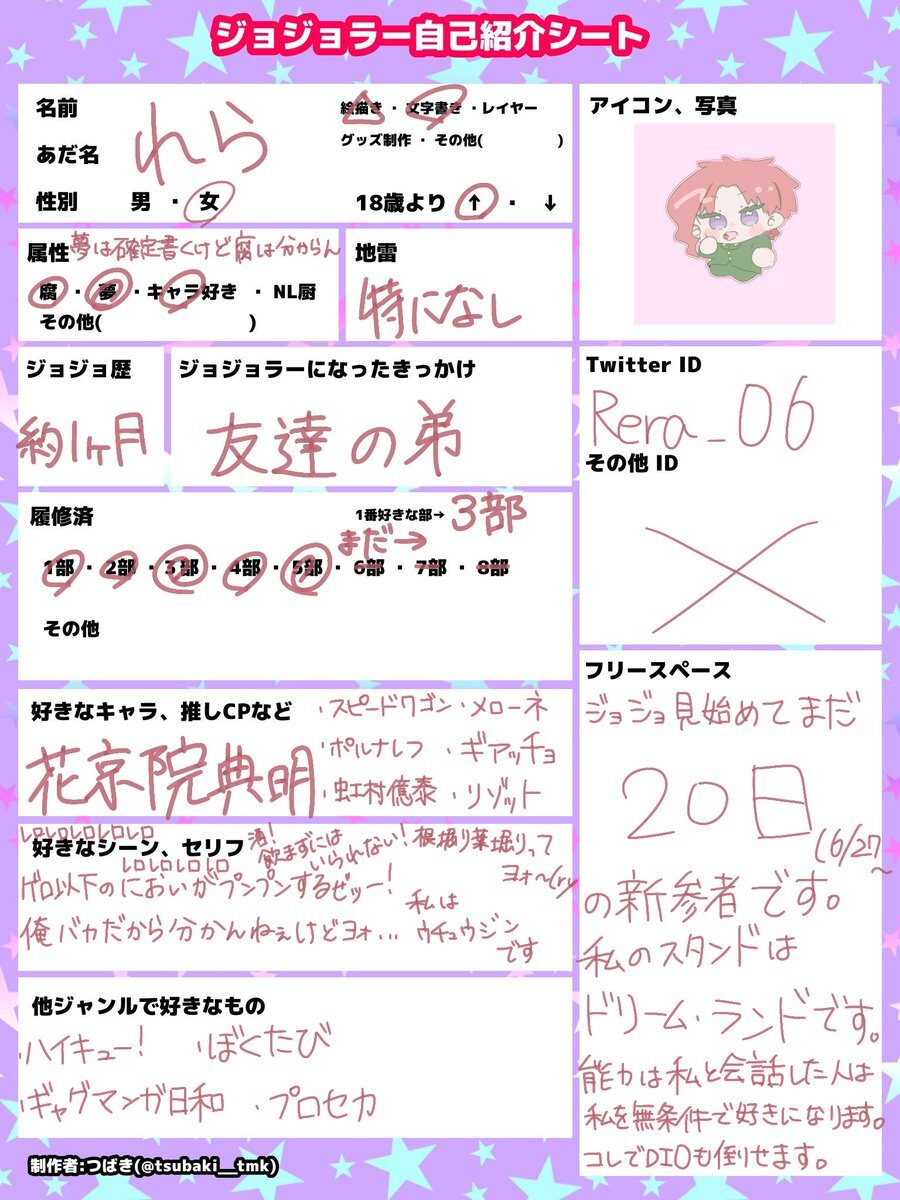 ジョジョラー自己紹介シート
名前
あだ名
れら
性別 男 ・ 女
絵描き ・ 文字書き ・レイヤー
グッズ制作 ・ その他( )
18歳より ↑ ・ ↓
属性 夢は確定書くけど腐は分からん
腐 ・ 夢 ・キャラ好き ・ NL厨
その他( )
地雷
特になし
ジョジョ歴
約1ヶ月
ジョジョラーになったきっかけ
友達の弟
履修済
1番好きな部→ 3部
まだ→
1部 ・ 2部 ・ 3部 ・ 4部 ・ 5部 ・ 6部 ・ 7部 ・ 8部
その他
好きなキャラ、推しCPなど
花京院典明
・スピードワゴン ・メローネ
・ポルナレフ ・ギアッチョ
・虹村億泰 ・リゾット
好きなシーン、セリフ
レロレロレロレロレロ
レロレロレロレロ
酒!
飲まずには
いられない!
根掘り葉掘りって
ヨォ〜(ry
ゲロ以下のにおいがプンプンするゼッー!
俺バカだから分かんねぇけどヨォ…
私は
ウチュウジン
です
他ジャンルで好きなもの
・ハイキュー! ・ぼくたび
・ギャグマンガ日和 ・プロセカ
制作者:つばき(@tsubaki__tmk)
アイコン、写真
Twitter ID
Rera_06
その他 ID
フリースペース
ジョジョ見始めてまだ
20日
(6/27〜
の新参者です。
私のスタンドは
ドリーム・ランドです。
能力は私と会話した人は
私を無条件で好きになります。
コレでDIOも倒せます。